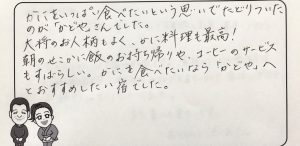 かにをいっぱい食べたいという思いでたどりついた
のが「かどや」さんでした。
大将のお人柄もよく、かに料理も最高!
朝のせこかに飯のお持ち帰りや、コーヒーのサービス
もすばらしい。かにを食べたいなら「かどや」へ
とおすすめしたい宿でした。